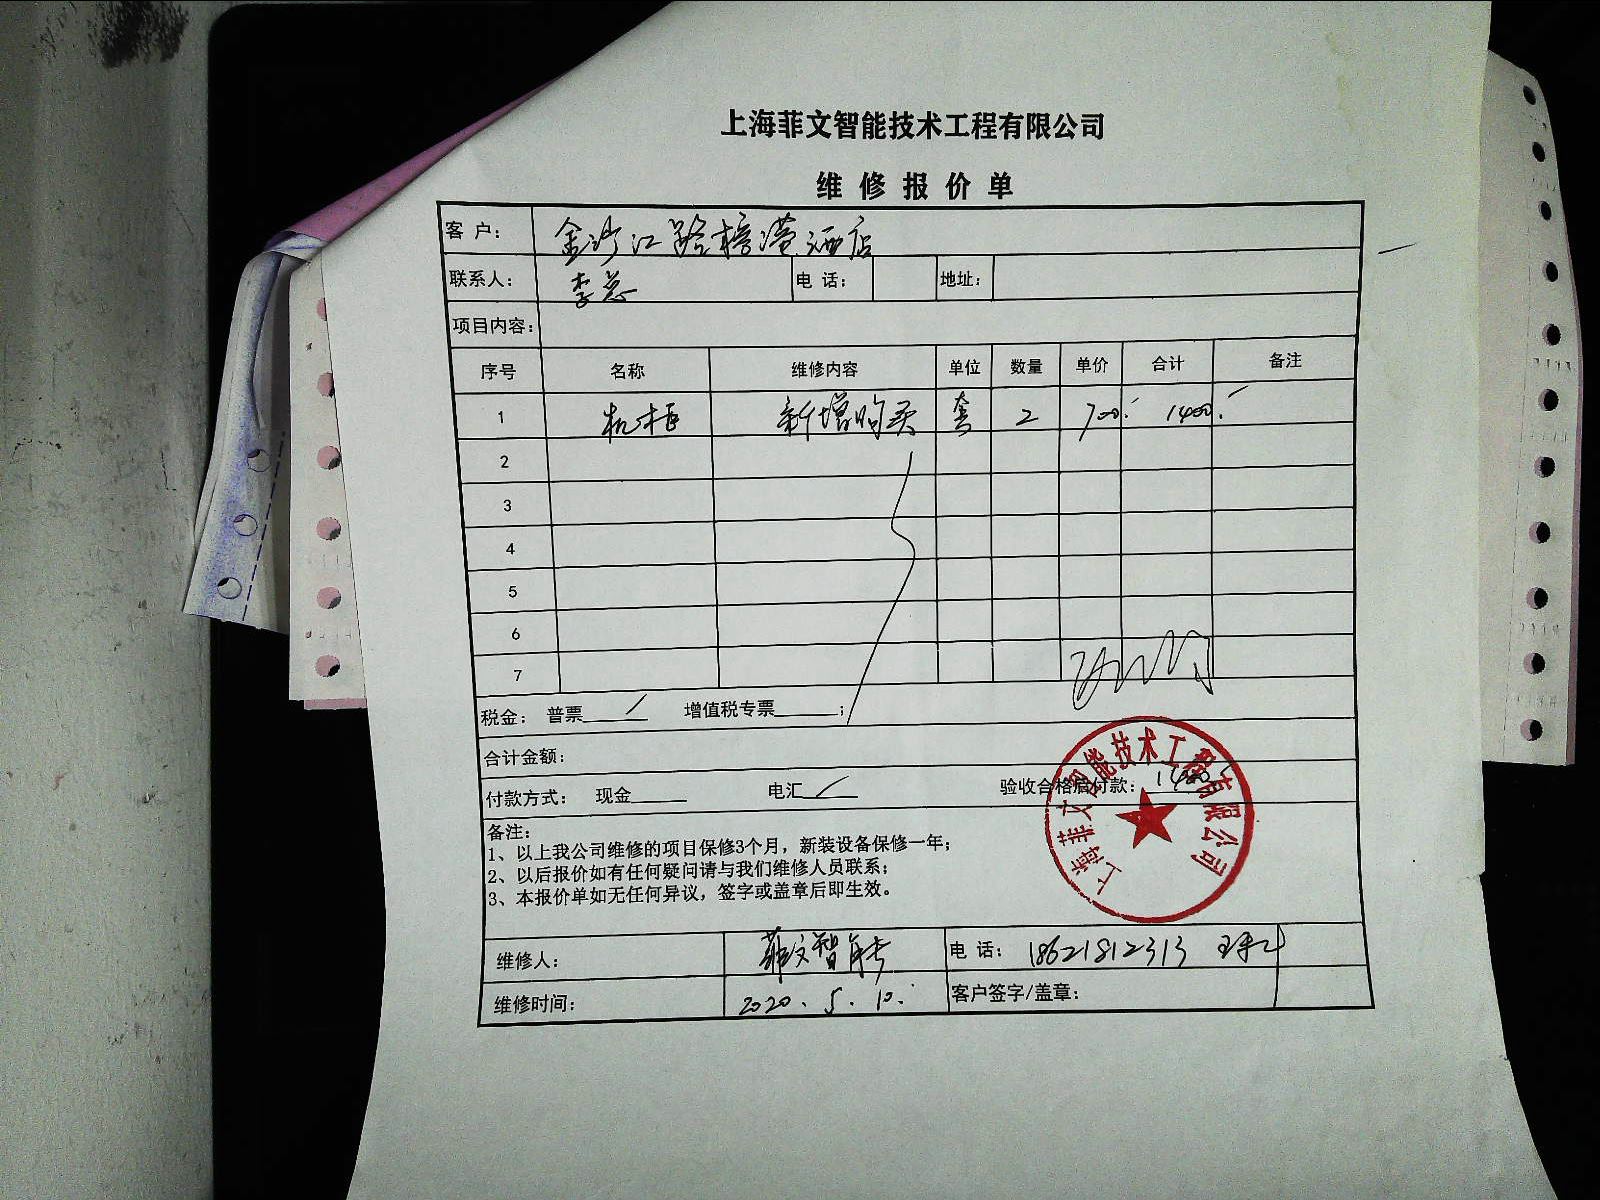 上海菲文智能技术工程有限公司
维修报价单
客 户： 金沙江路 酒店
联系人： 李总 电 话： 地址：
项目内容：
序号 名称 维修内容 单位 数量 单价 合计 备注
1 机柜 新增购买 套 2 700. 1400.
2
3
4
5
6
7
税金： 普票____ 增值税专票____；
合计金额：
付款方式： 现金____ 电汇____ 验收合格后付款：1400
上海菲文智能技术工程有限公司
备注：
1、以上我公司维修的项目保修3个月，新装设备保修一年；
2、以后报价如有任何疑问请与我们维修人员联系；
3、本报价单如无任何异议，签字或盖章后即生效。
维修人： 菲文智能 电 话： 18621812313
维修时间： 2020.5.10. 客户签字/盖章：